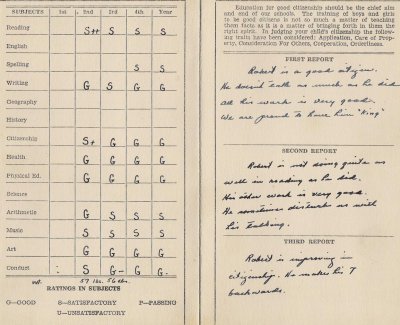 SUBJECTS 1st 2nd 3rd 4th Year
Reading S++ S S S
English
Spelling S S
Writing G S G G
Geography
History
Citizenship S+ G G G
Health G G G G
Physical Ed. G G G G
Science
Arithmetic G S S S
Music S S S S
Art G G G G
Conduct S G- G G
57 lbs. 56 lbs.
RATINGS IN SUBJECTS
G—GOOD S—SATISFACTORY P—PASSING
U—UNSATISFACTORY
Education for good citizenship should be the chief aim
and end of our schools. The training of boys and girls
to be good citizens is not so much a matter of teaching
them facts as it is a matter of bringing forth in them the
right spirit. In judging your child's citizenship the follow-
ing traits have been considered: Application, Care of Prop-
erty, Consideration For Others, Cooperation, Orderliness.
FIRST REPORT
Robert is a good citizen.
He doesn't talk as much as he did
All his work is very good.
We are proud to have him "King"
SECOND REPORT
Robert is not doing quite as
well in reading as he did.
His other work is very good.
He sometimes disturbs us with
his talking.
THIRD REPORT
Robert is improving in
citizenship. He makes his 7
backwards.